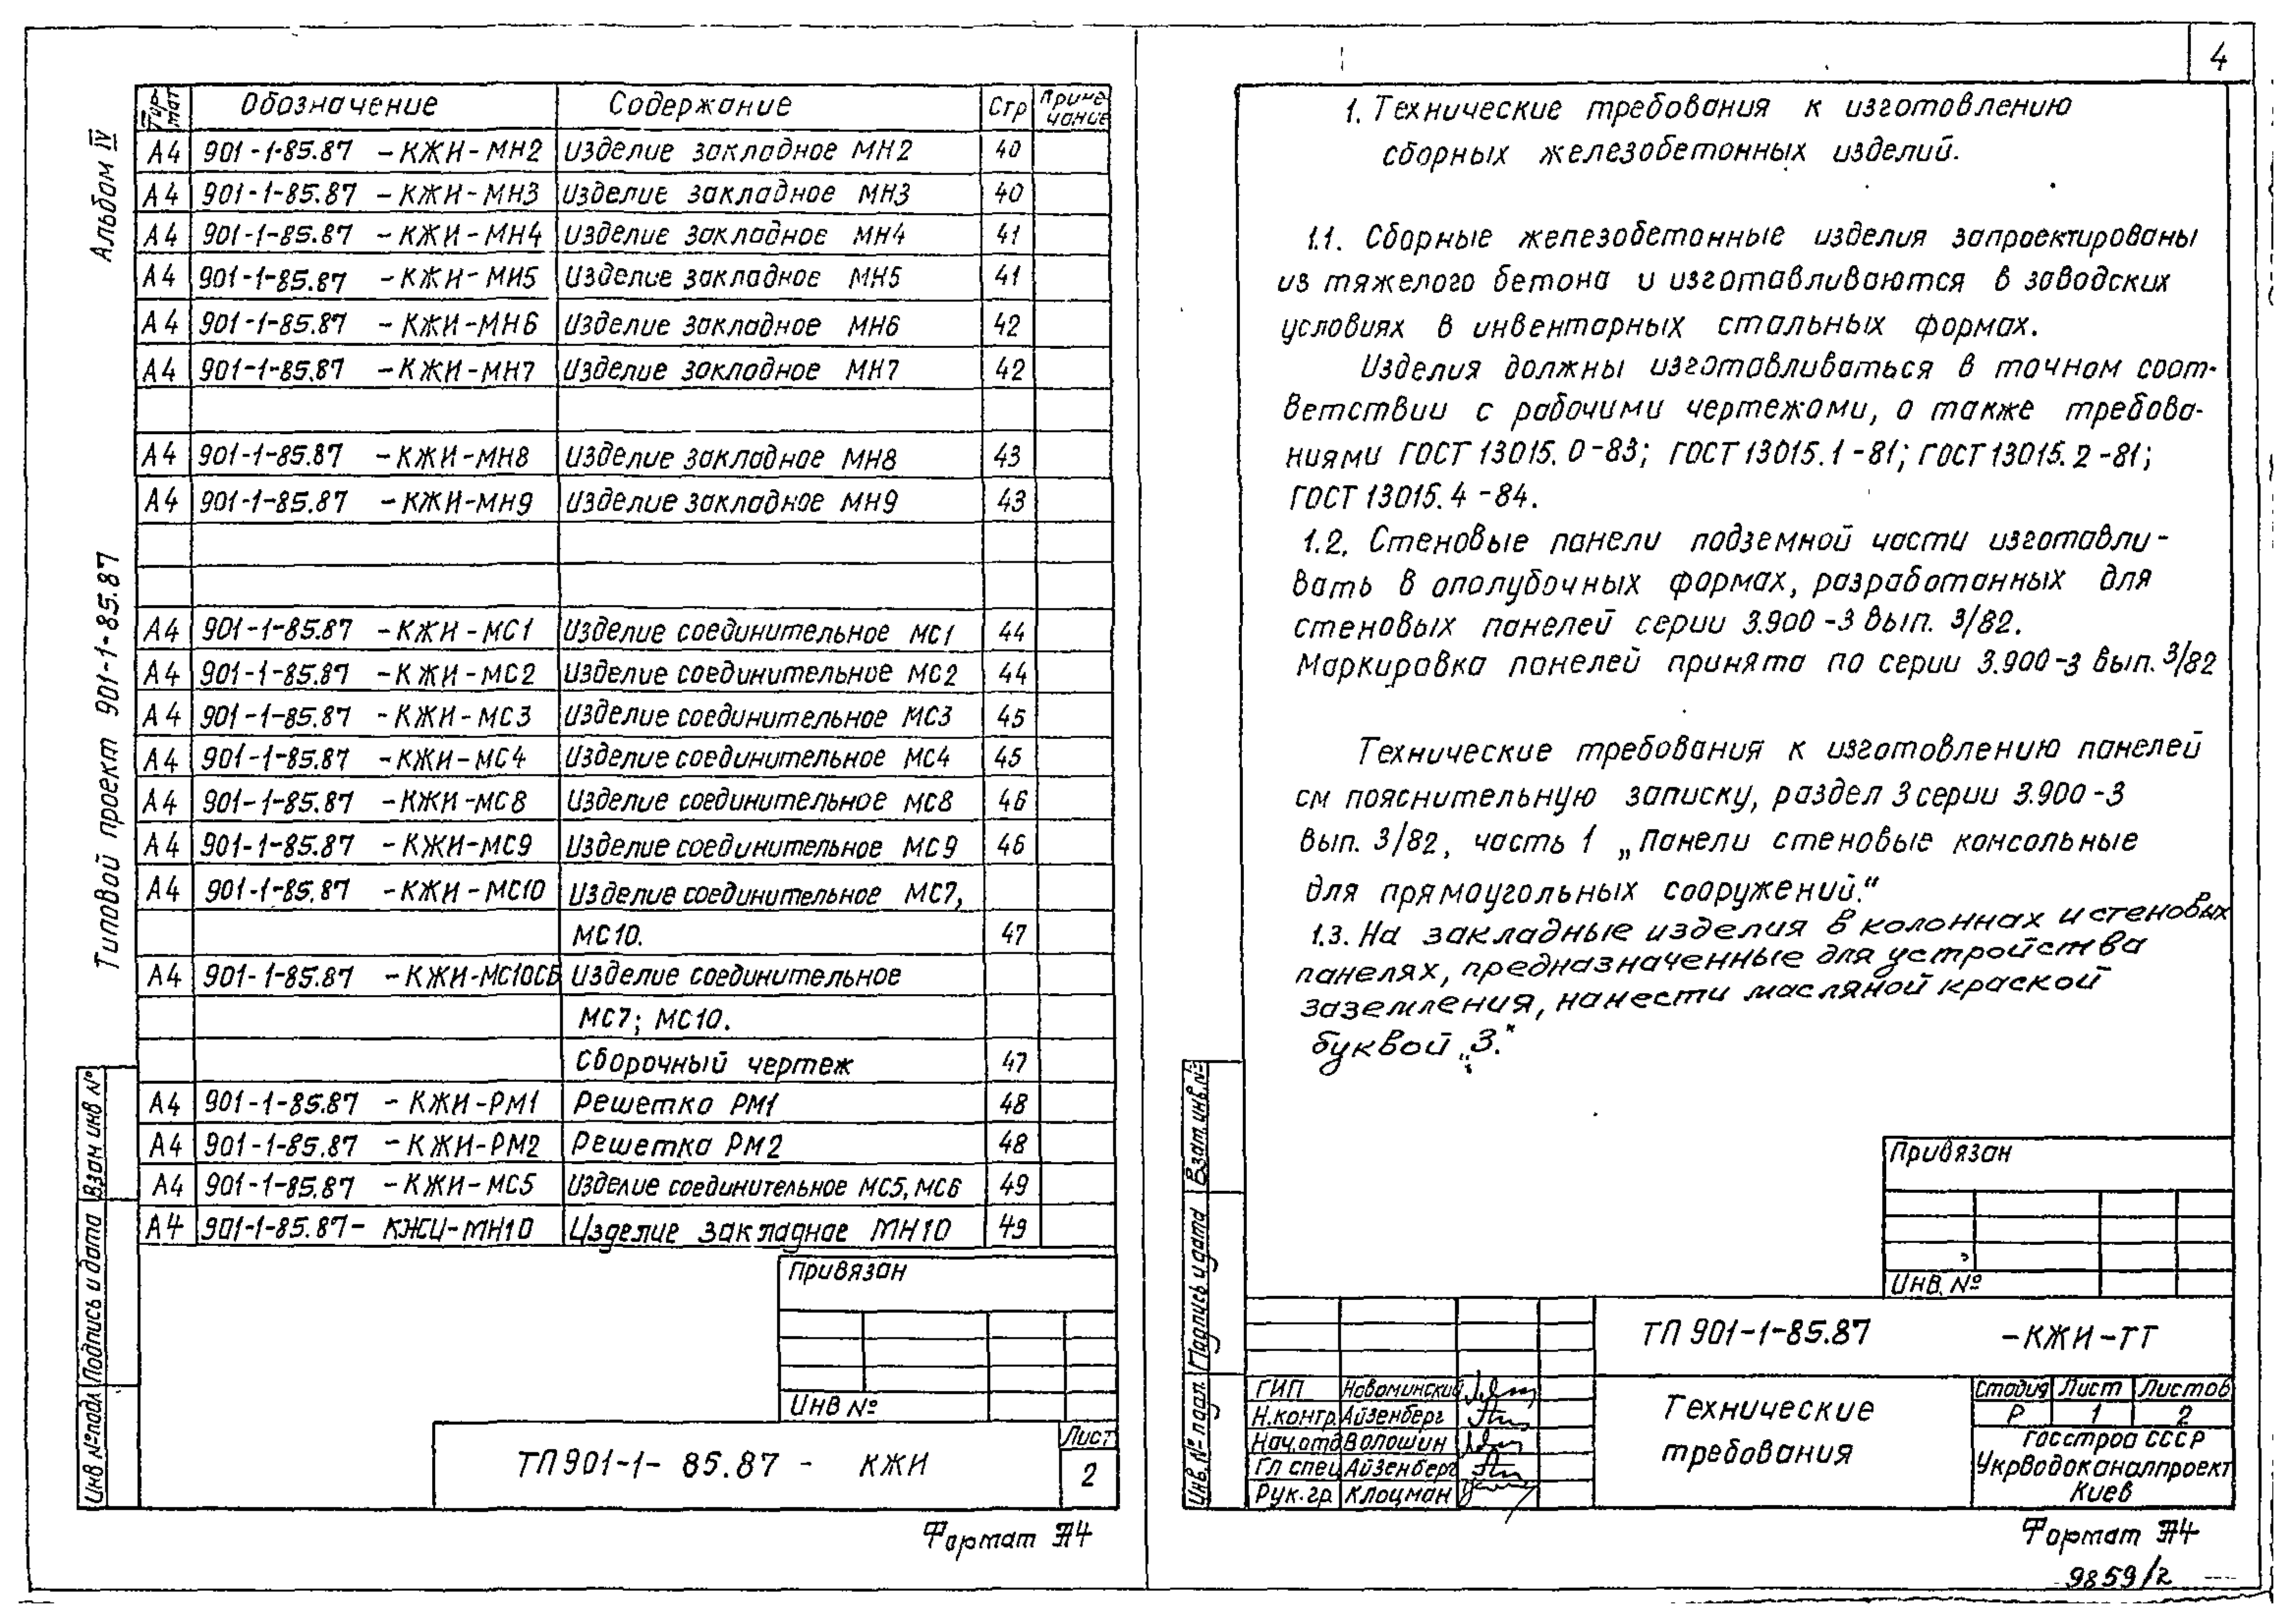 4
Альбом IV
Типовой проект 901-1-85.87
Обозначение Содержание Стр Приме чание
А4 901-1-85.87 -КЖИ-МН2 Изделие закладное МН2 40
А4 901-1-85.87 -КЖИ-МН3 Изделие закладное МН3 40
А4 901-1-85.87 -КЖИ-МН4 Изделие закладное МН4 41
А4 901-1-85.87 -КЖИ-МИ5 Изделие закладное МН5 41
А4 901-1-85.87 -КЖИ-МН6 Изделие закладное МН6 42
А4 901-1-85.87 -КЖИ-МН7 Изделие закладное МН7 42
А4 901-1-85.87 -КЖИ-МН8 Изделие закладное МН8 43
А4 901-1-85.87 -КЖИ-МН9 Изделие закладное МН9 43
А4 901-1-85.87 -КЖИ-МС1 Изделие соединительное МС1 44
А4 901-1-85.87 -КЖИ-МС2 Изделие соединительное МС2 44
А4 901-1-85.87 -КЖИ-МС3 Изделие соединительное МС3 45
А4 901-1-85.87 -КЖИ-МС4 Изделие соединительное МС4 45
А4 901-1-85.87 -КЖИ-МС8 Изделие соединительное МС8 46
А4 901-1-85.87 -КЖИ-МС9 Изделие соединительное МС9 46
А4 901-1-85.87 -КЖИ-МС10 Изделие соединительное МС7,
МС10. 47
А4 901-1-85.87 -КЖИ-МС10СБ Изделие соединительное
МС7; МС10.
Сборочный чертеж 47
А4 901-1-85.87 -КЖИ-РМ1 Решетка РМ1 48
А4 901-1-85.87 -КЖИ-РМ2 Решетка РМ2 48
А4 901-1-85.87 -КЖИ-МС5 Изделие соединительное МС5, МС6 49
А4 901-1-85.87- КЖИ-МН10 Изделие закладное МН10 49
Взан инв №
Подпись и дата
Инв № подл
Привязан
Инв №
ТП 901-1- 85.87 - КЖИ
Лист
2
Формат А4
1. Технические требования к изготовлению
сборных железобетонных изделий.
1.1. Сборные железобетонные изделия запроектированы
из тяжелого бетона и изготавливаются в заводских
условиях в инвентарных стальных формах.
Изделия должны изготавливаться в точном соот-
ветствии с рабочими чертежами, а также требова-
ниями ГОСТ 13015.0-83; ГОСТ 13015.1-81; ГОСТ 13015.2-81;
ГОСТ 13015.4-84.
1.2. Стеновые панели подземной части изготавли-
вать в опалубочных формах, разработанных для
стеновых панелей серии 3.900-3 вып. 3/82.
Маркировка панелей принята по серии 3.900-3 вып. 3/82
Технические требования к изготовлению панелей
см пояснительную записку, раздел 3 серии 3.900-3
вып. 3/82, часть 1 „Панели стеновые консольные
для прямоугольных сооружений.“
1.3. На закладные изделия в колоннах и стеновых
панелях, предназначенные для устройства
заземления, нанести масляной краской
буквой „З.“
Взам. инв. №
Подпись и дата
Инв. № подл.
Привязан
Инв. №
ТП 901-1-85.87 -КЖИ-ТТ
ГИП Новоминский
Н.контр. Айзенберг
Нач.отд Волошин
Гл спец Айзенберг
Рук.гр. Клоцман
Технические
требования
Стадия Лист Листов
Р 1 2
Госстрой СССР
Укрводоканалпроект
Киев
Формат А4
9859/2